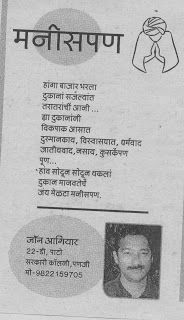 मनीसपण
हांगा बाजार भरला
दुकानां सजल्यांत
तरातरांचीं आनी ...
ह्या दुकानांनी
विकपाक आसात
दुस्मानकाय, विस्वासघात, धर्मवाद
जातीयवाद, नसाय, कुसकेंपण
पूण...
हांव सोदून सोदून थकलों
दुकान मानवतेचें
जंय मेळटा मनीसपण.
जॉन आगियार
22-डी, पाटो
सरकारी कॉलनी, पणजी
मो-9822159705